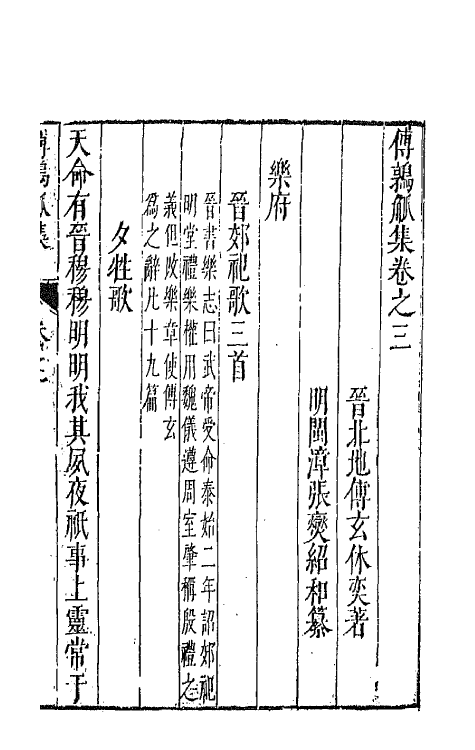 傅鶉觚集卷之三
晉北地傅玄休奕著
明閩漳張燮紹和纂
樂府
晉郊祀歌三首
晉書樂志曰武帝受命泰始二年詔郊祀
明堂禮樂權用魏儀遵周室肇稱殷禮之
義但改樂章使傅玄
爲之辭凡十九篇
夕牲歌
天命有晉穆穆明明我其夙夜祇事上靈常于
傅鶉觚集
卷三